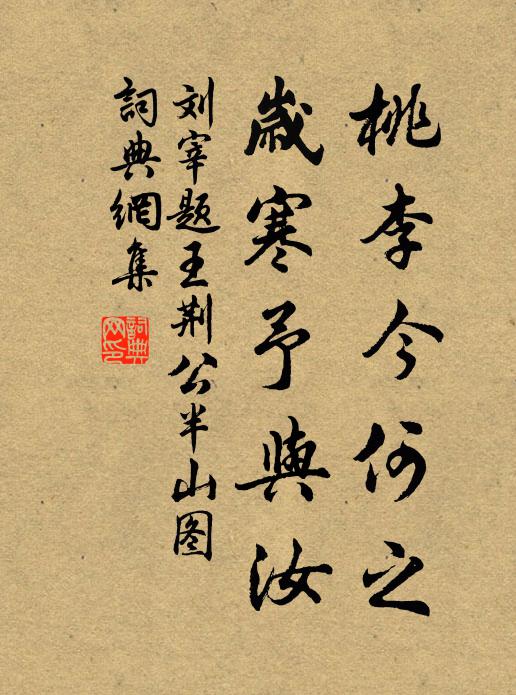 桃李今何之
歲寒予與汝
刘宰题王荆公半山图
詞典網集
詞典
网印